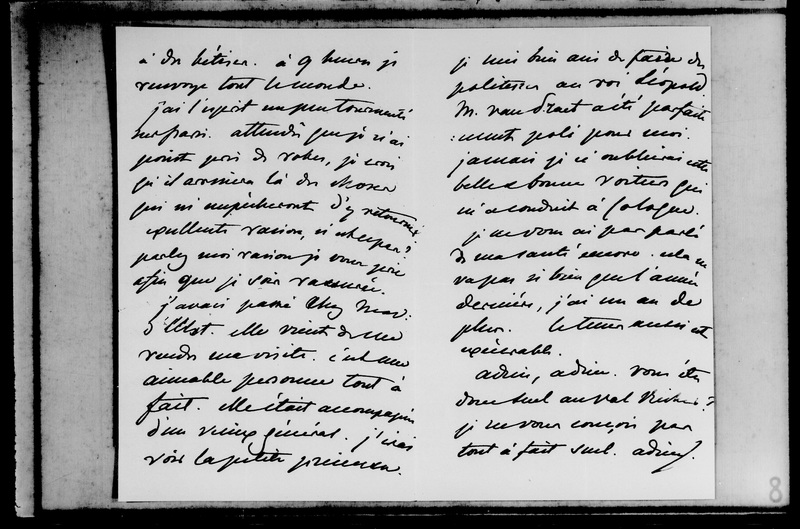 à des bêtises. à 9 heures je
renvoye tout le monde.
j'ai l'esprit un peu tourmenté
attendu que je n'ai
point pris de robes, je crois
qu'il arrivera là des choses
qui m'empêcheront d'y retourner
excellente raison, n'est ce pas?
parlez moi raison je vous prie
afin que je sois rassurée.
j'avais passé chez Mad:
d'Elst. elle vient de me
rendre ma visite. c'est une
aimable personne tout à
fait. elle était accompagnée
d'un vieux général. j'irai
voir la petite princesse.
je suis bien aise de faire des
politesses au roi Léopold
M. van Praet a été parfaite
:ment poli pour moi.
jamais je n'oublierai cette
belle & bonne voiture qui
m'a conduit à Cologne.
je ne vous ai pas parlé
de ma santé encore. cela ne
va pas si bien que l'année
dernière, j'ai un an de
plus. le tems aussi est
exécrable.
adieu, adieu. vous êtes
donc seul au val Richer?
je ne vous conçois pas
tout à fait seul. adieu.
8